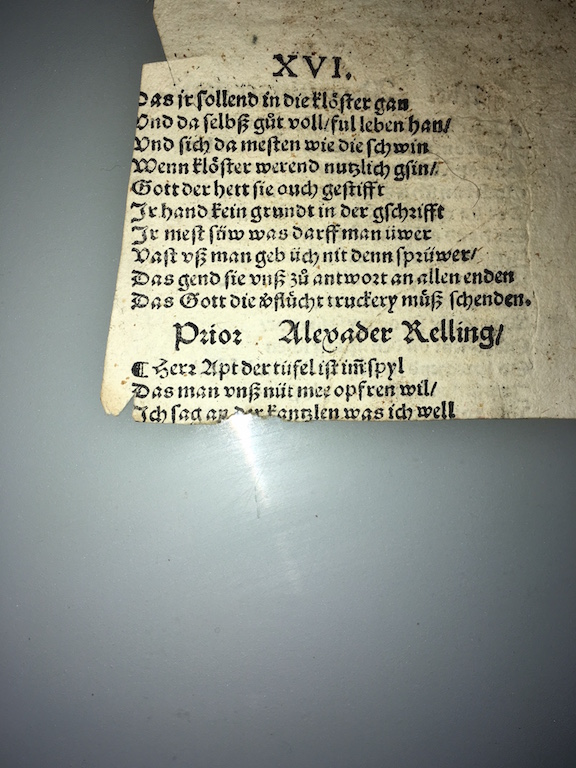 XVI.
Das jr sollend in die klöster gan
Vnd da selbß gůt voll/ful leben han/
Vnd sich da mesten wie die schwin
Wenn klöster werend nutzlich gsin/
Gott der hett sie ouch gestifft
Jr hand kein grundt in der gschrifft
Jr mest süw was darff man üwer
Vast vß man geb üch nit denn sprüwer/
Das gend sie vnß zů antwort an allen enden
Das Gott die v̈flůcht truckery můß schenden.
Prior Alexader Relling/
¶ Herr Apt der tüfel ist im̃ spyl
Das man vnß nüt mee opfren wil/
Ich sag an der kantzlen was ich well